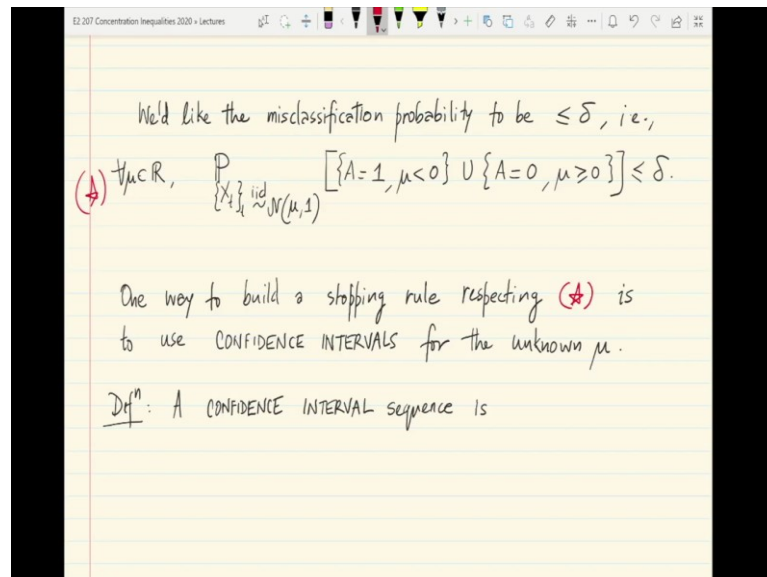 E2 207 Concentration Inequalities 2020 » Lectures
We'd like the misclassification probability to be ≤ δ, i.e.,
(☆) ∀μ∈ℝ, ℙ [{A=1, μ<0} ∪ {A=0, μ≥0}] ≤ δ.
{X_t}_t iid ~ N(μ,1)
One way to build a stopping rule respecting (☆) is
to use CONFIDENCE INTERVALS for the unknown μ.
Defⁿ: A CONFIDENCE INTERVAL sequence is